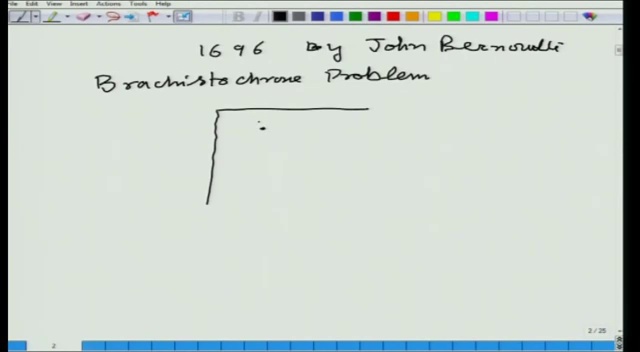 Edit View Insert Actions Tools Help
1696 By John Bernoulli
Brachistochrone Problem
2 / 25
2